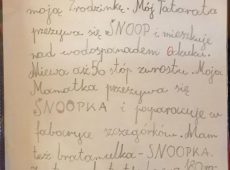 moją Zrodzinkę. Mój Tatarata
przezywa się SNOOP i mieszkuje
nad wodospanadem
Miewa aż 50 stóp zwrostu. Moja
Mamatka przezywa się
SNOOPKA i poparacuje w
fabaryce szczagórków. Mam
też bratanulka - SNOOPKA.